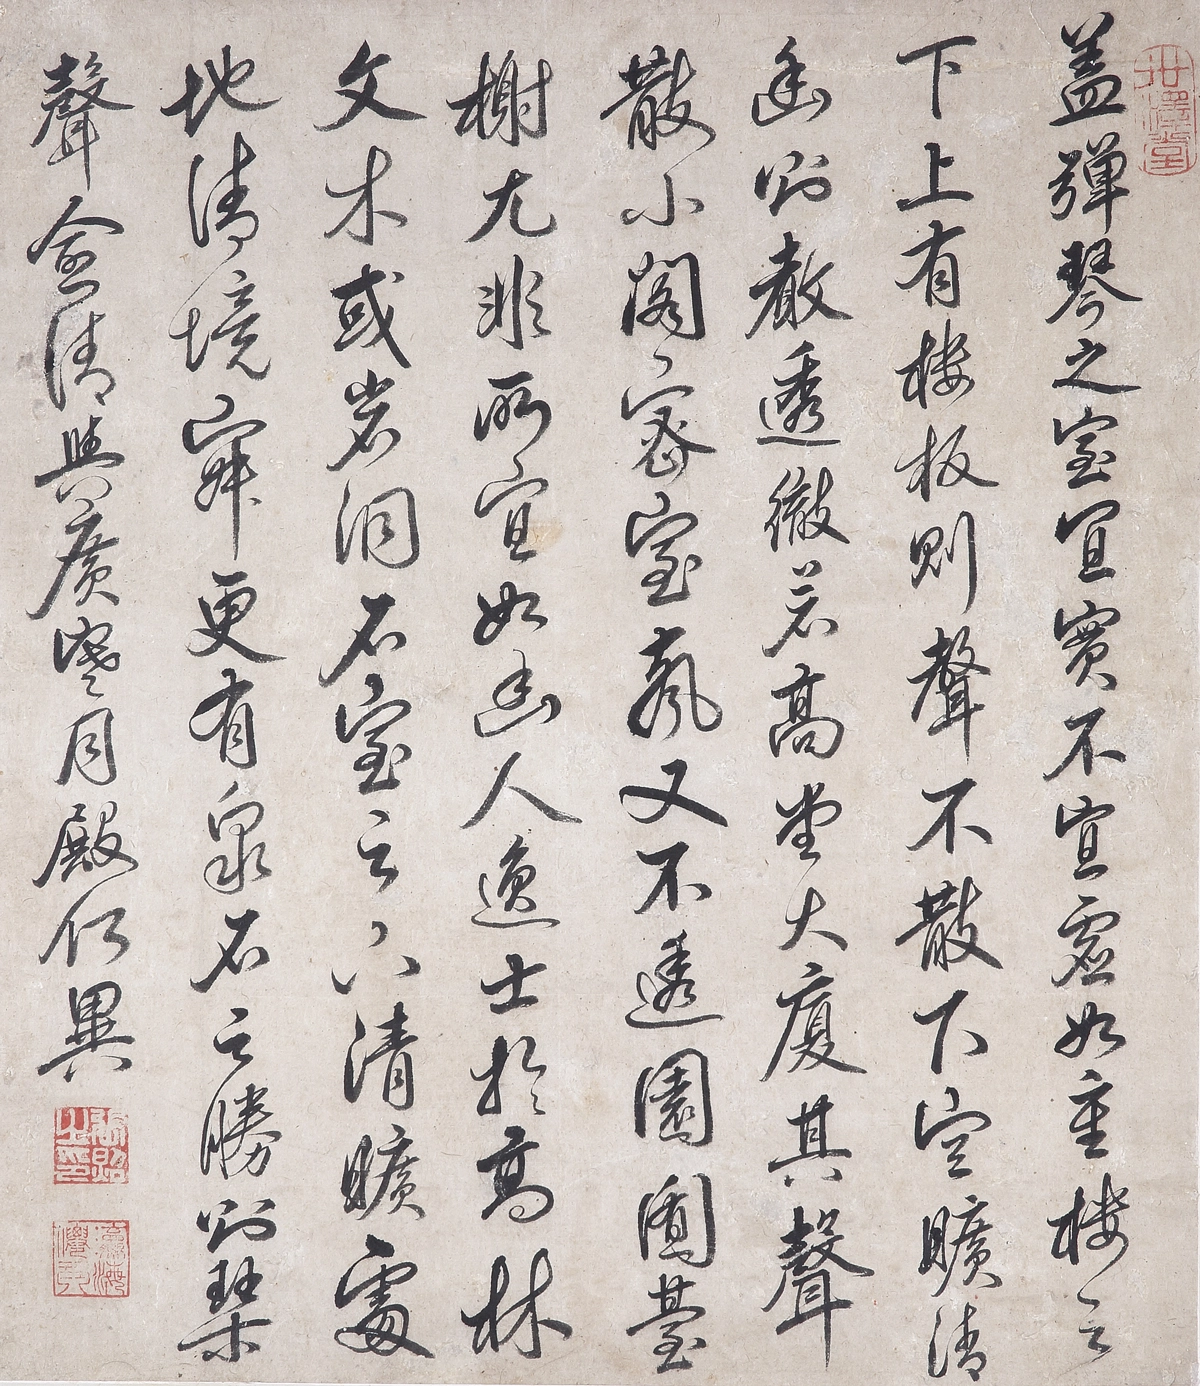 世澤堂
盖彈琴之室宜實不宜虛如重楼之
下上有楼板則聲不散下空曠清
幽則透徹若高堂大廈其聲
散小閣密室氣又不透園囿臺
榭尤非所宜如幽人逸士於高林
文木或岩洞石室之下清曠處
地清境寂更有泉石之勝則琴
聲愈清與廣寒月殿何異